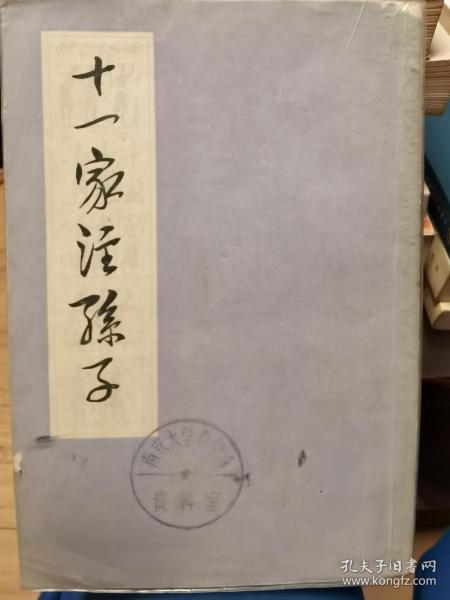 十一家注孫子
南京大学
资料室
孔夫子旧书网
www.kongfz.com